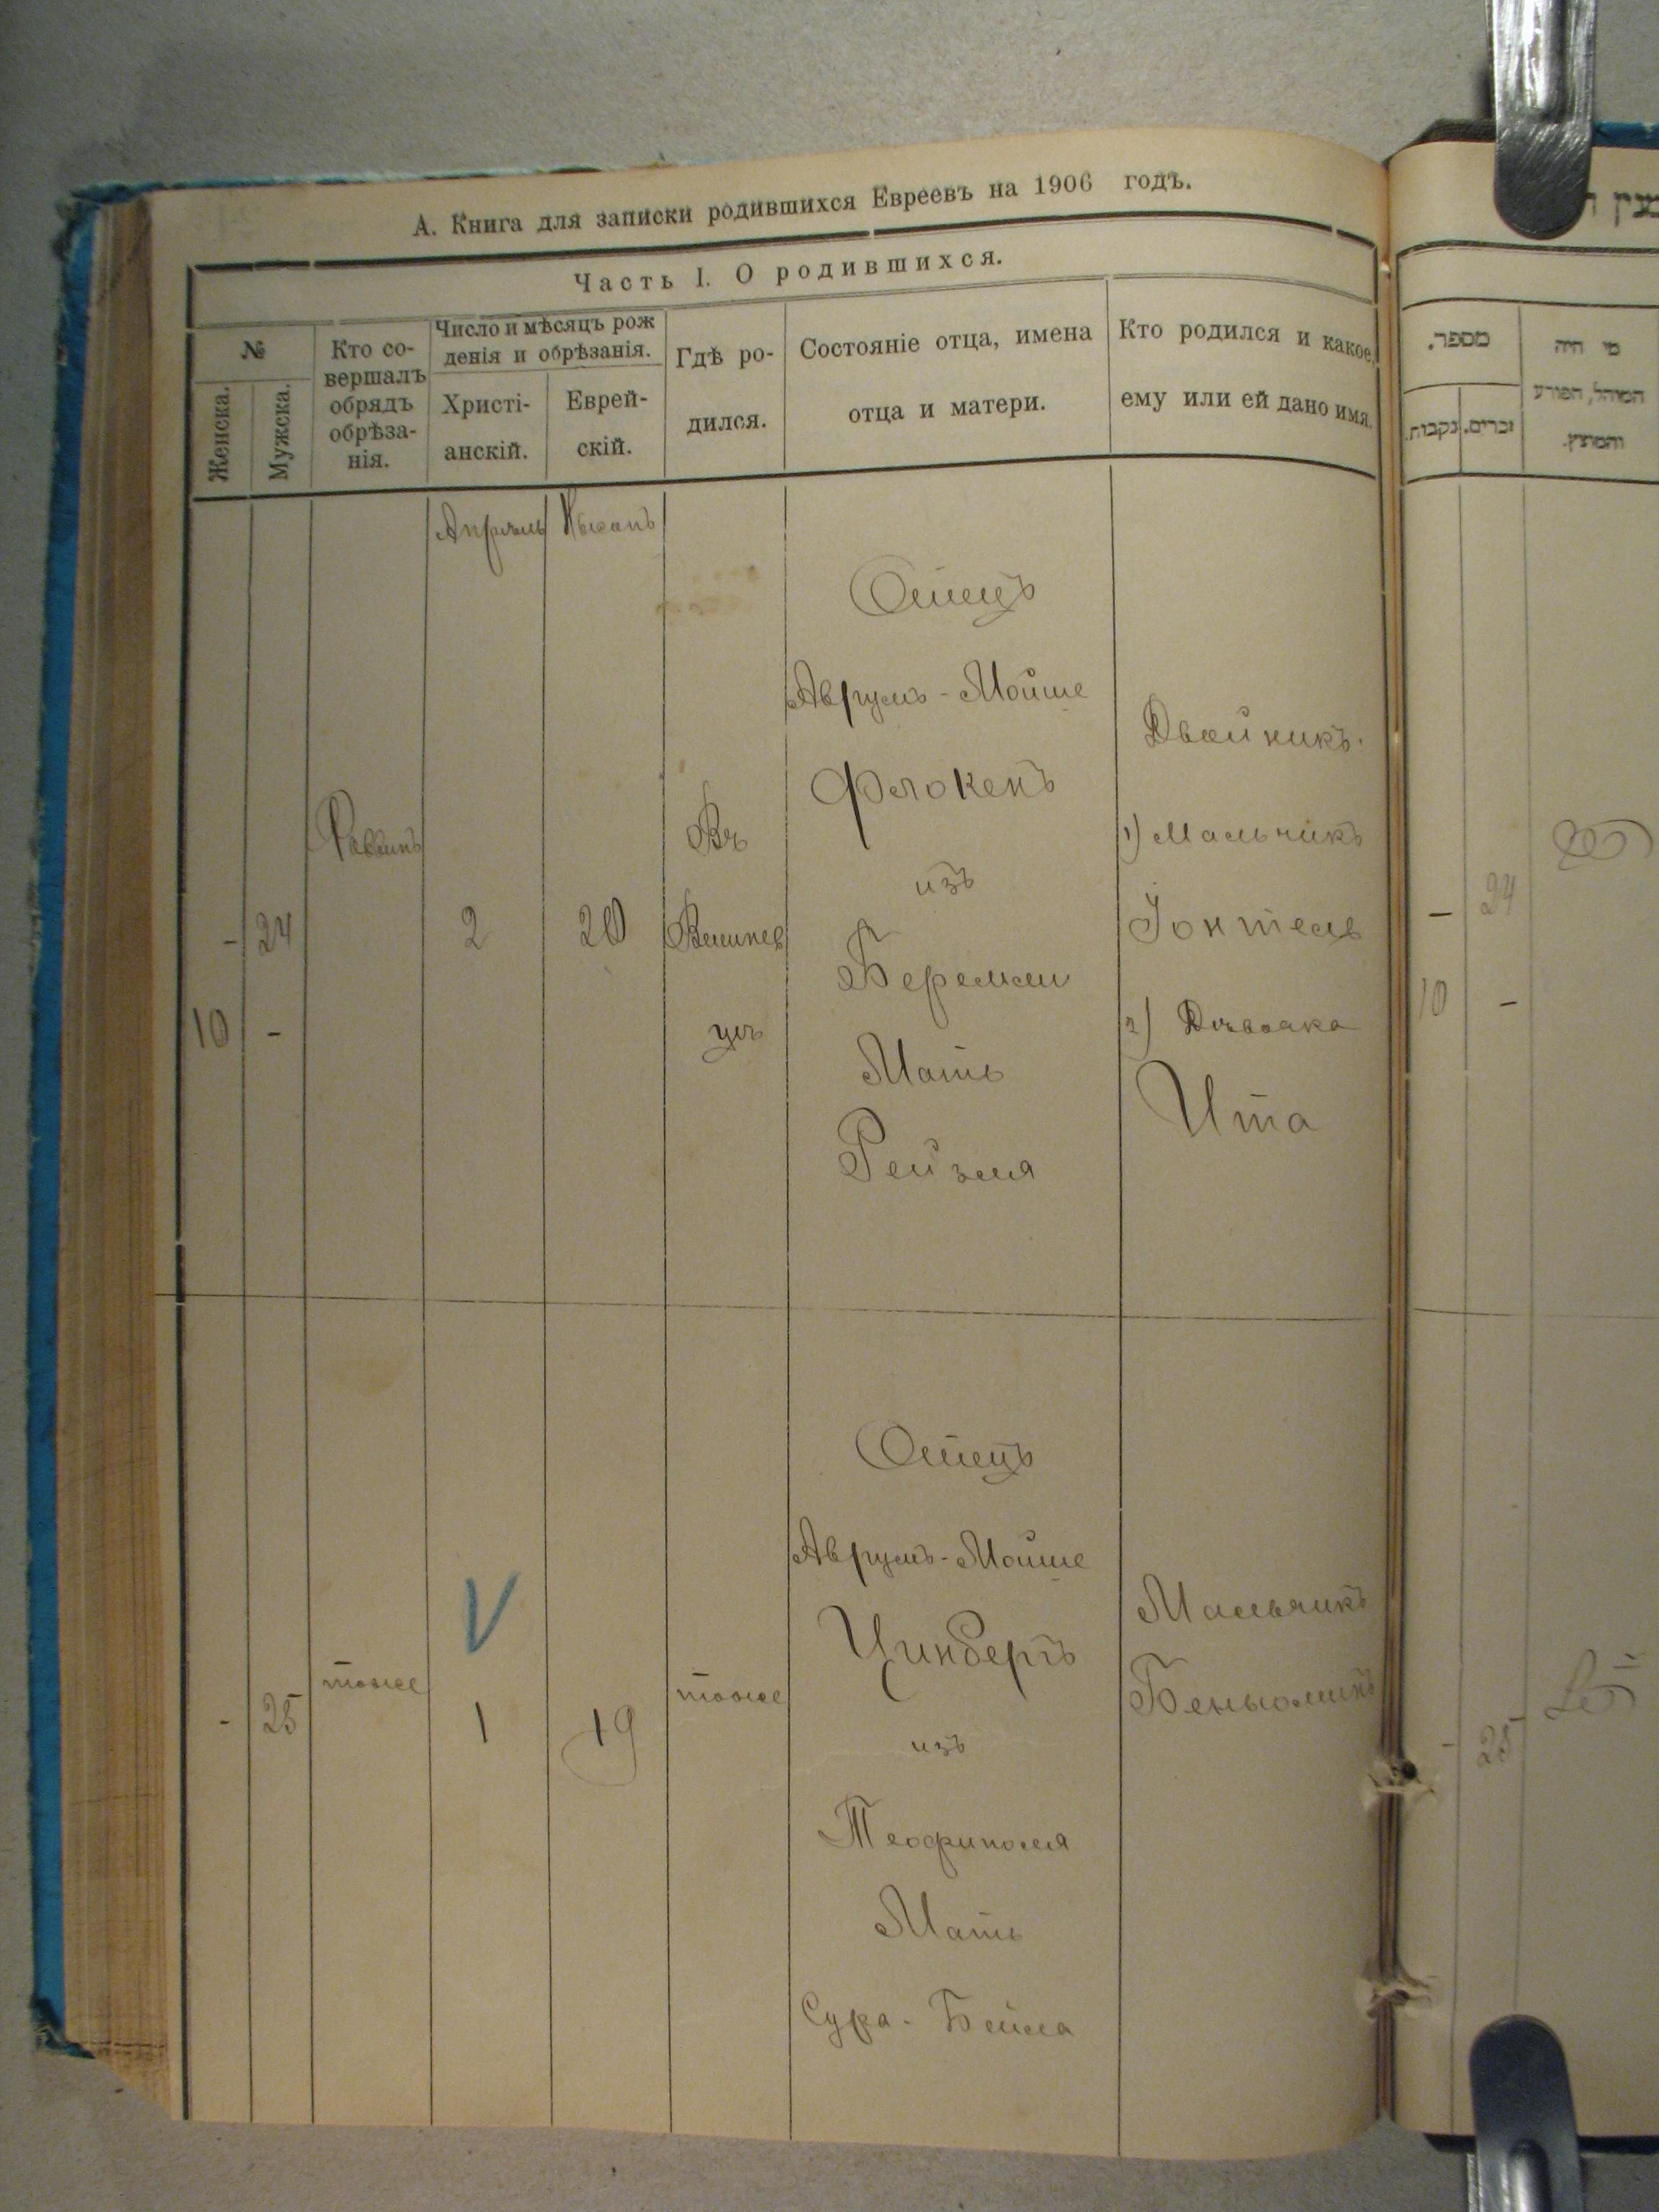 А. Книга для записки родившихся Евреевъ на 1906 годъ.
Часть I. О родившихся.
№
Женска.
Мужска.
Кто со-
вершалъ
обрядъ
обрѣза-
нія.
Число и мѣсяцъ рож
денія и обрѣзанія.
Христі-
анскій.
Еврей-
скій.
Гдѣ ро-
дился.
Состояніе отца, имена
отца и матери.
Кто родился и какое,
ему или ей дано имя.
Апрѣль
-
24
10
-
Раввинъ
2
20
Въ
Вишнев
цѣ
Отецъ
Аврумъ-Мойше
Флокенъ
изъ
Мать
Рейзля
Двойникъ.
1) Мальчикъ
2) Дѣвочка
Ита
-
25
тоже
V
1
19
тоже
Отецъ
Аврумъ-Мойше
Цинбергъ
изъ
Теофиполя
Мать
Сура-Бейла
Мальчикъ
Беньюминъ
מספר.
נקבות.
זכרים.
מי היה
המוהל, הפורע
והמוצץ.
-
24
10
-
-
25